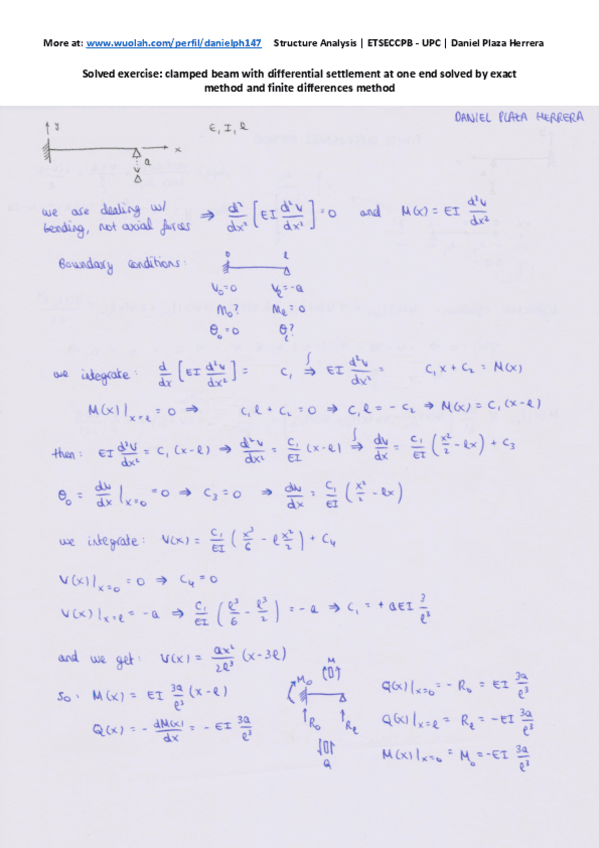 More at: www.wuolah.com/perfil/danielph147 Structure Analysis | ETSECCPB - UPC | Daniel Plaza Herrera
Solved exercise: clamped beam with differential settlement at one end solved by exact
method and finite differences method
DANIEL PLAZA HERRERA
y E, I, ℓ
x
a
we are dealing w/ ⇒ d²/dx² [EI d²v/dx²] = 0 and M(x) = EI d²v/dx²
bending, not axial forces
Boundary conditions: 0 ℓ
V₀=0 Vℓ=-a
M₀? Mℓ=0
θ₀=0 θℓ?
we integrate: d/dx [EI d²v/dx²] = C₁ ⇒∫ EI d²v/dx² = C₁x + C₂ = M(x)
M(x)|x=ℓ = 0 ⇒ C₁ℓ + C₂ = 0 ⇒ C₁ℓ = -C₂ ⇒ M(x) = C₁(x-ℓ)
then: EI d²v/dx² = C₁(x-ℓ) ⇒ d²v/dx² = C₁/EI (x-ℓ) ⇒∫ dv/dx = C₁/EI (x²/2 - ℓx) + C₃
θ₀ = dv/dx|x=0 = 0 ⇒ C₃ = 0 ⇒ dv/dx = C₁/EI (x²/2 - ℓx)
we integrate: V(x) = C₁/EI (x³/6 - ℓ x²/2) + C₄
V(x)|x=0 = 0 ⇒ C₄ = 0
V(x)|x=ℓ = -a ⇒ C₁/EI (ℓ³/6 - ℓ³/2) = -a ⇒ C₁ = +aEI 3/ℓ³
and we get: V(x) = ax²/2ℓ³ (x-3ℓ)
so: M(x) = EI 3a/ℓ³ (x-ℓ)
Q(x) = -dM(x)/dx = -EI 3a/ℓ³
M
M₀
R₀ Rℓ
Q
Q(x)|x=0 = -R₀ = EI 3a/ℓ³
Q(x)|x=ℓ = Rℓ = -EI 3a/ℓ³
M(x)|x=0 = M₀ = -EI 3a/ℓ³